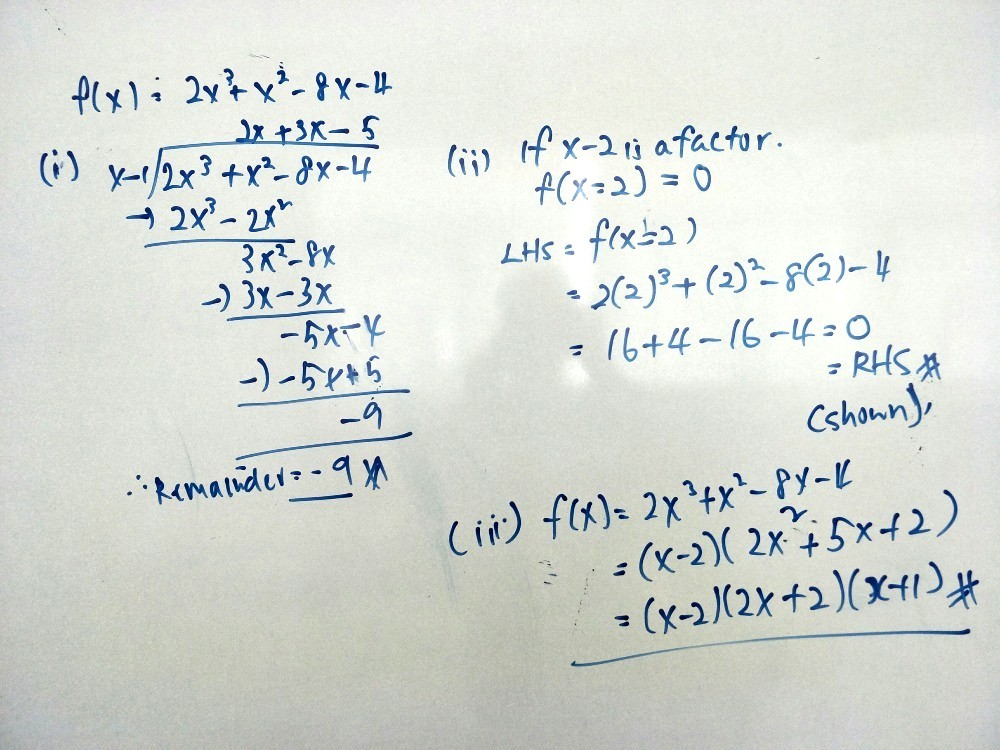 f(x) = 2x³ + x² - 8x - 4
(i)
2x + 3x - 5
x-1/2x³ + x² - 8x - 4
-) 2x³ - 2x²
3x² - 8x
-) 3x - 3x
-5x - 4
-) -5x + 5
-9
∴ Remainder = -9 #
(ii) If x-2 is a factor.
f(x=2) = 0
LHS = f(x=2)
= 2(2)³ + (2)² - 8(2) - 4
= 16 + 4 - 16 - 4 = 0
= RHS #
(shown).
(iii) f(x) = 2x³ + x² - 8x - 4
= (x-2)(2x² + 5x + 2)
= (x-2)(2x+2)(x+1) #